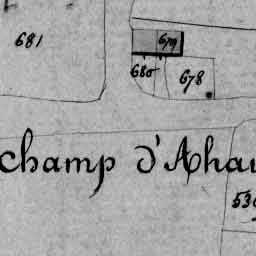 681
679
680
678
Champ d'Ahau